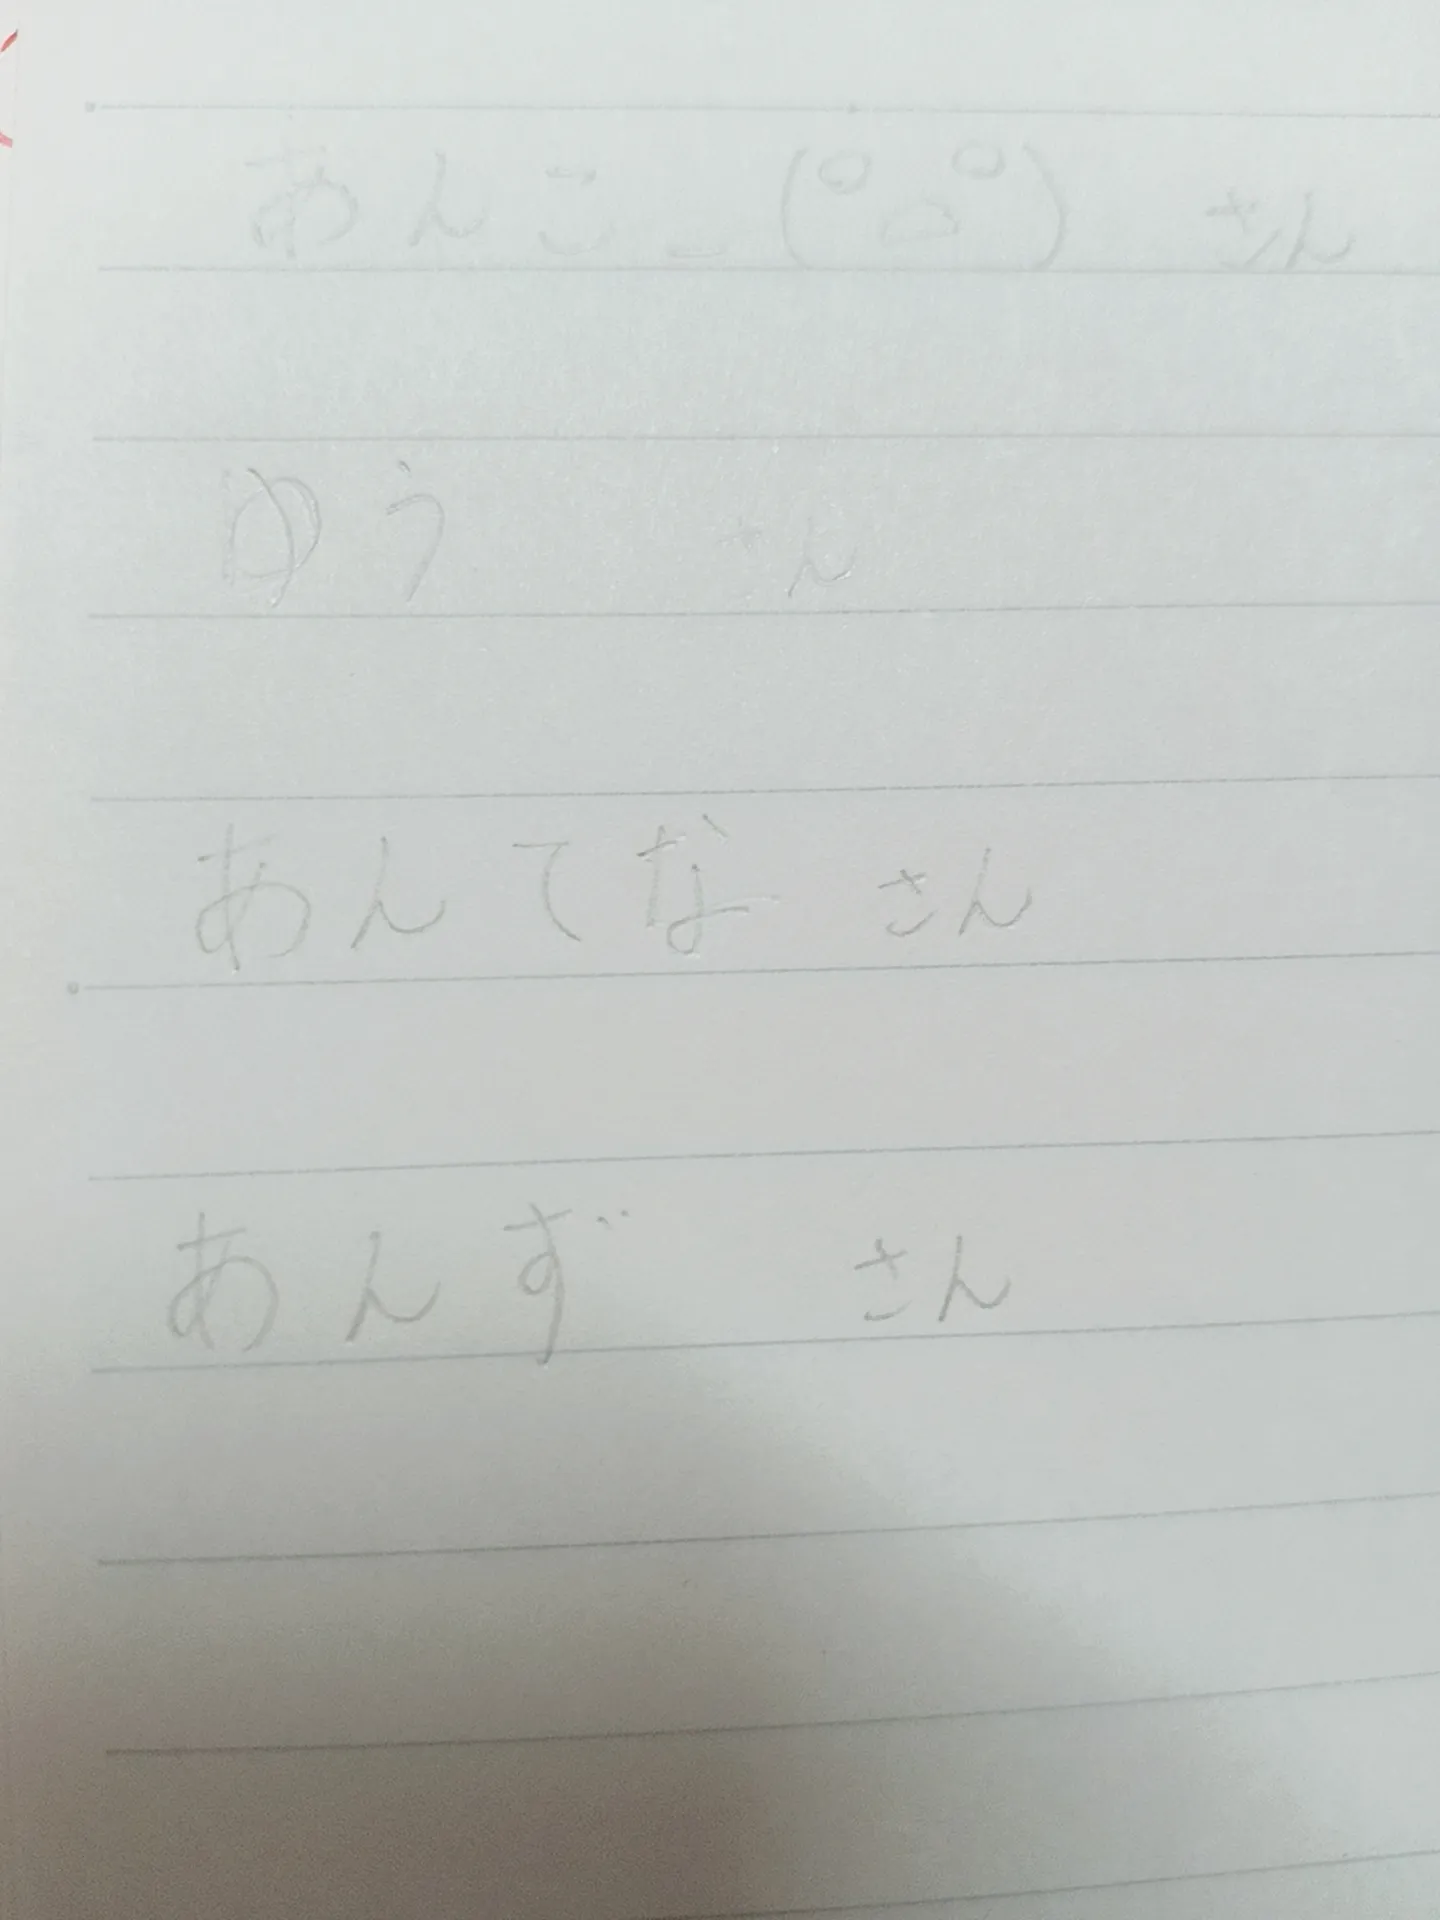 あんこ_(°△°) さん
ゆう さん
あんてな さん
あんず さん